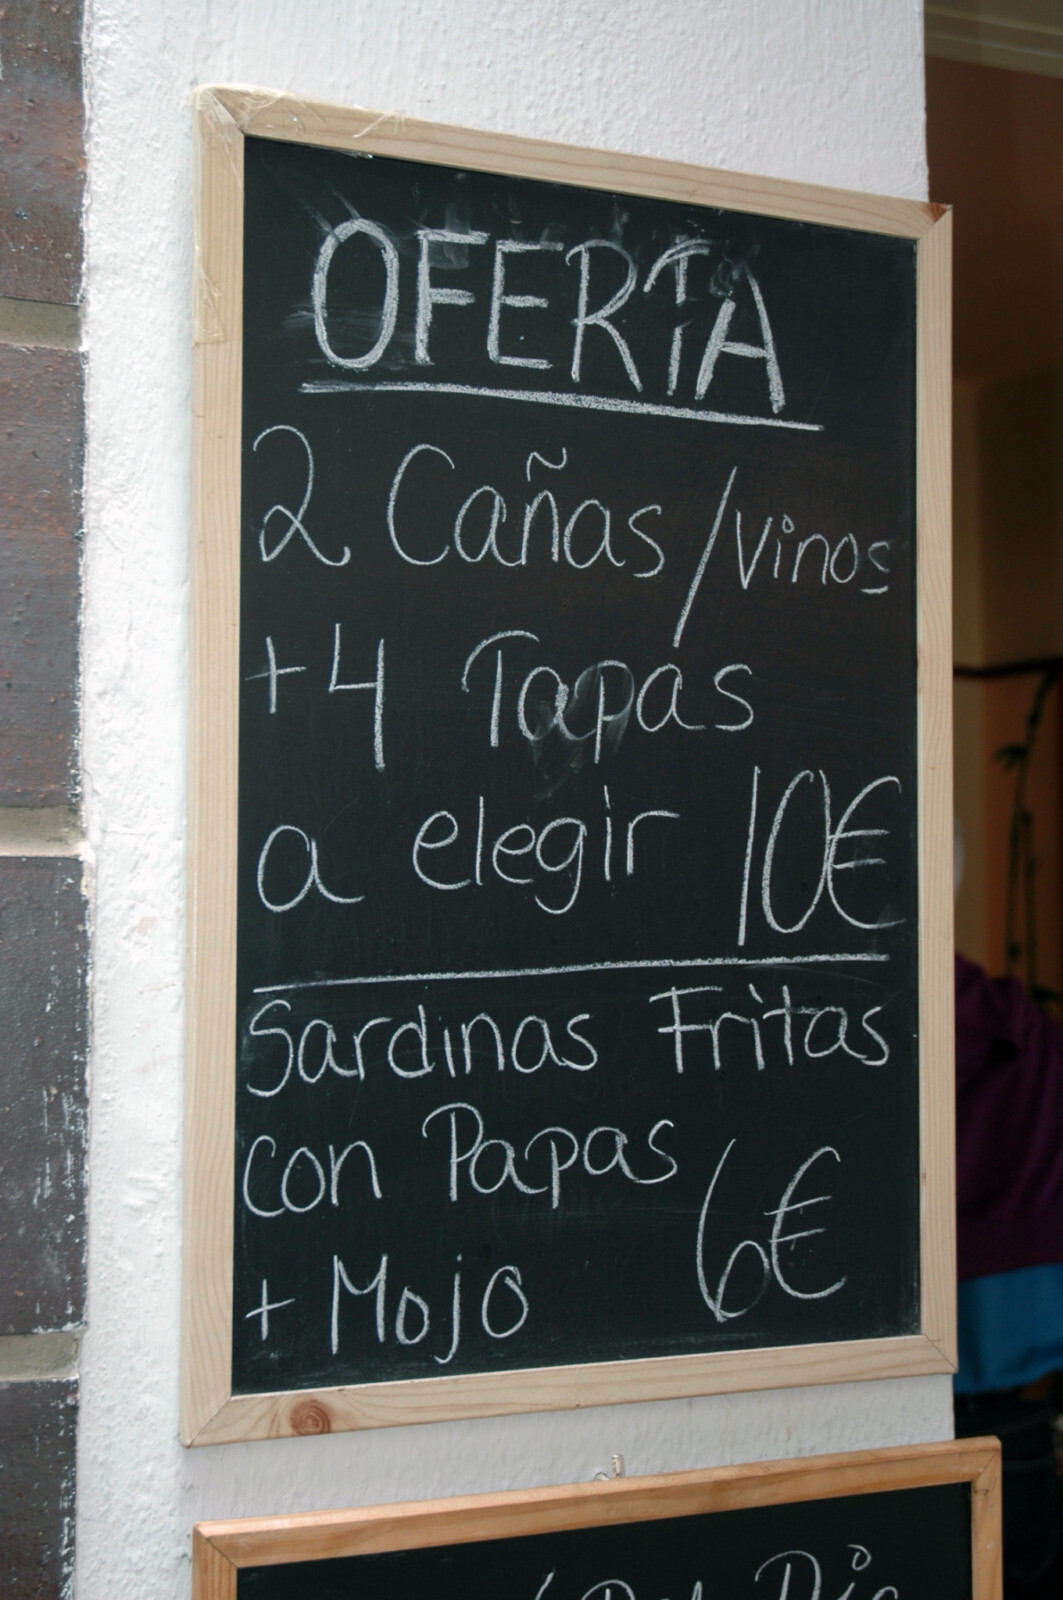 OFERTA
2 Cañas / Vinos
+ 4 Tapas
a elegir 10€
Sardinas Fritas
con Papas
+ Mojo 6€
Del Día